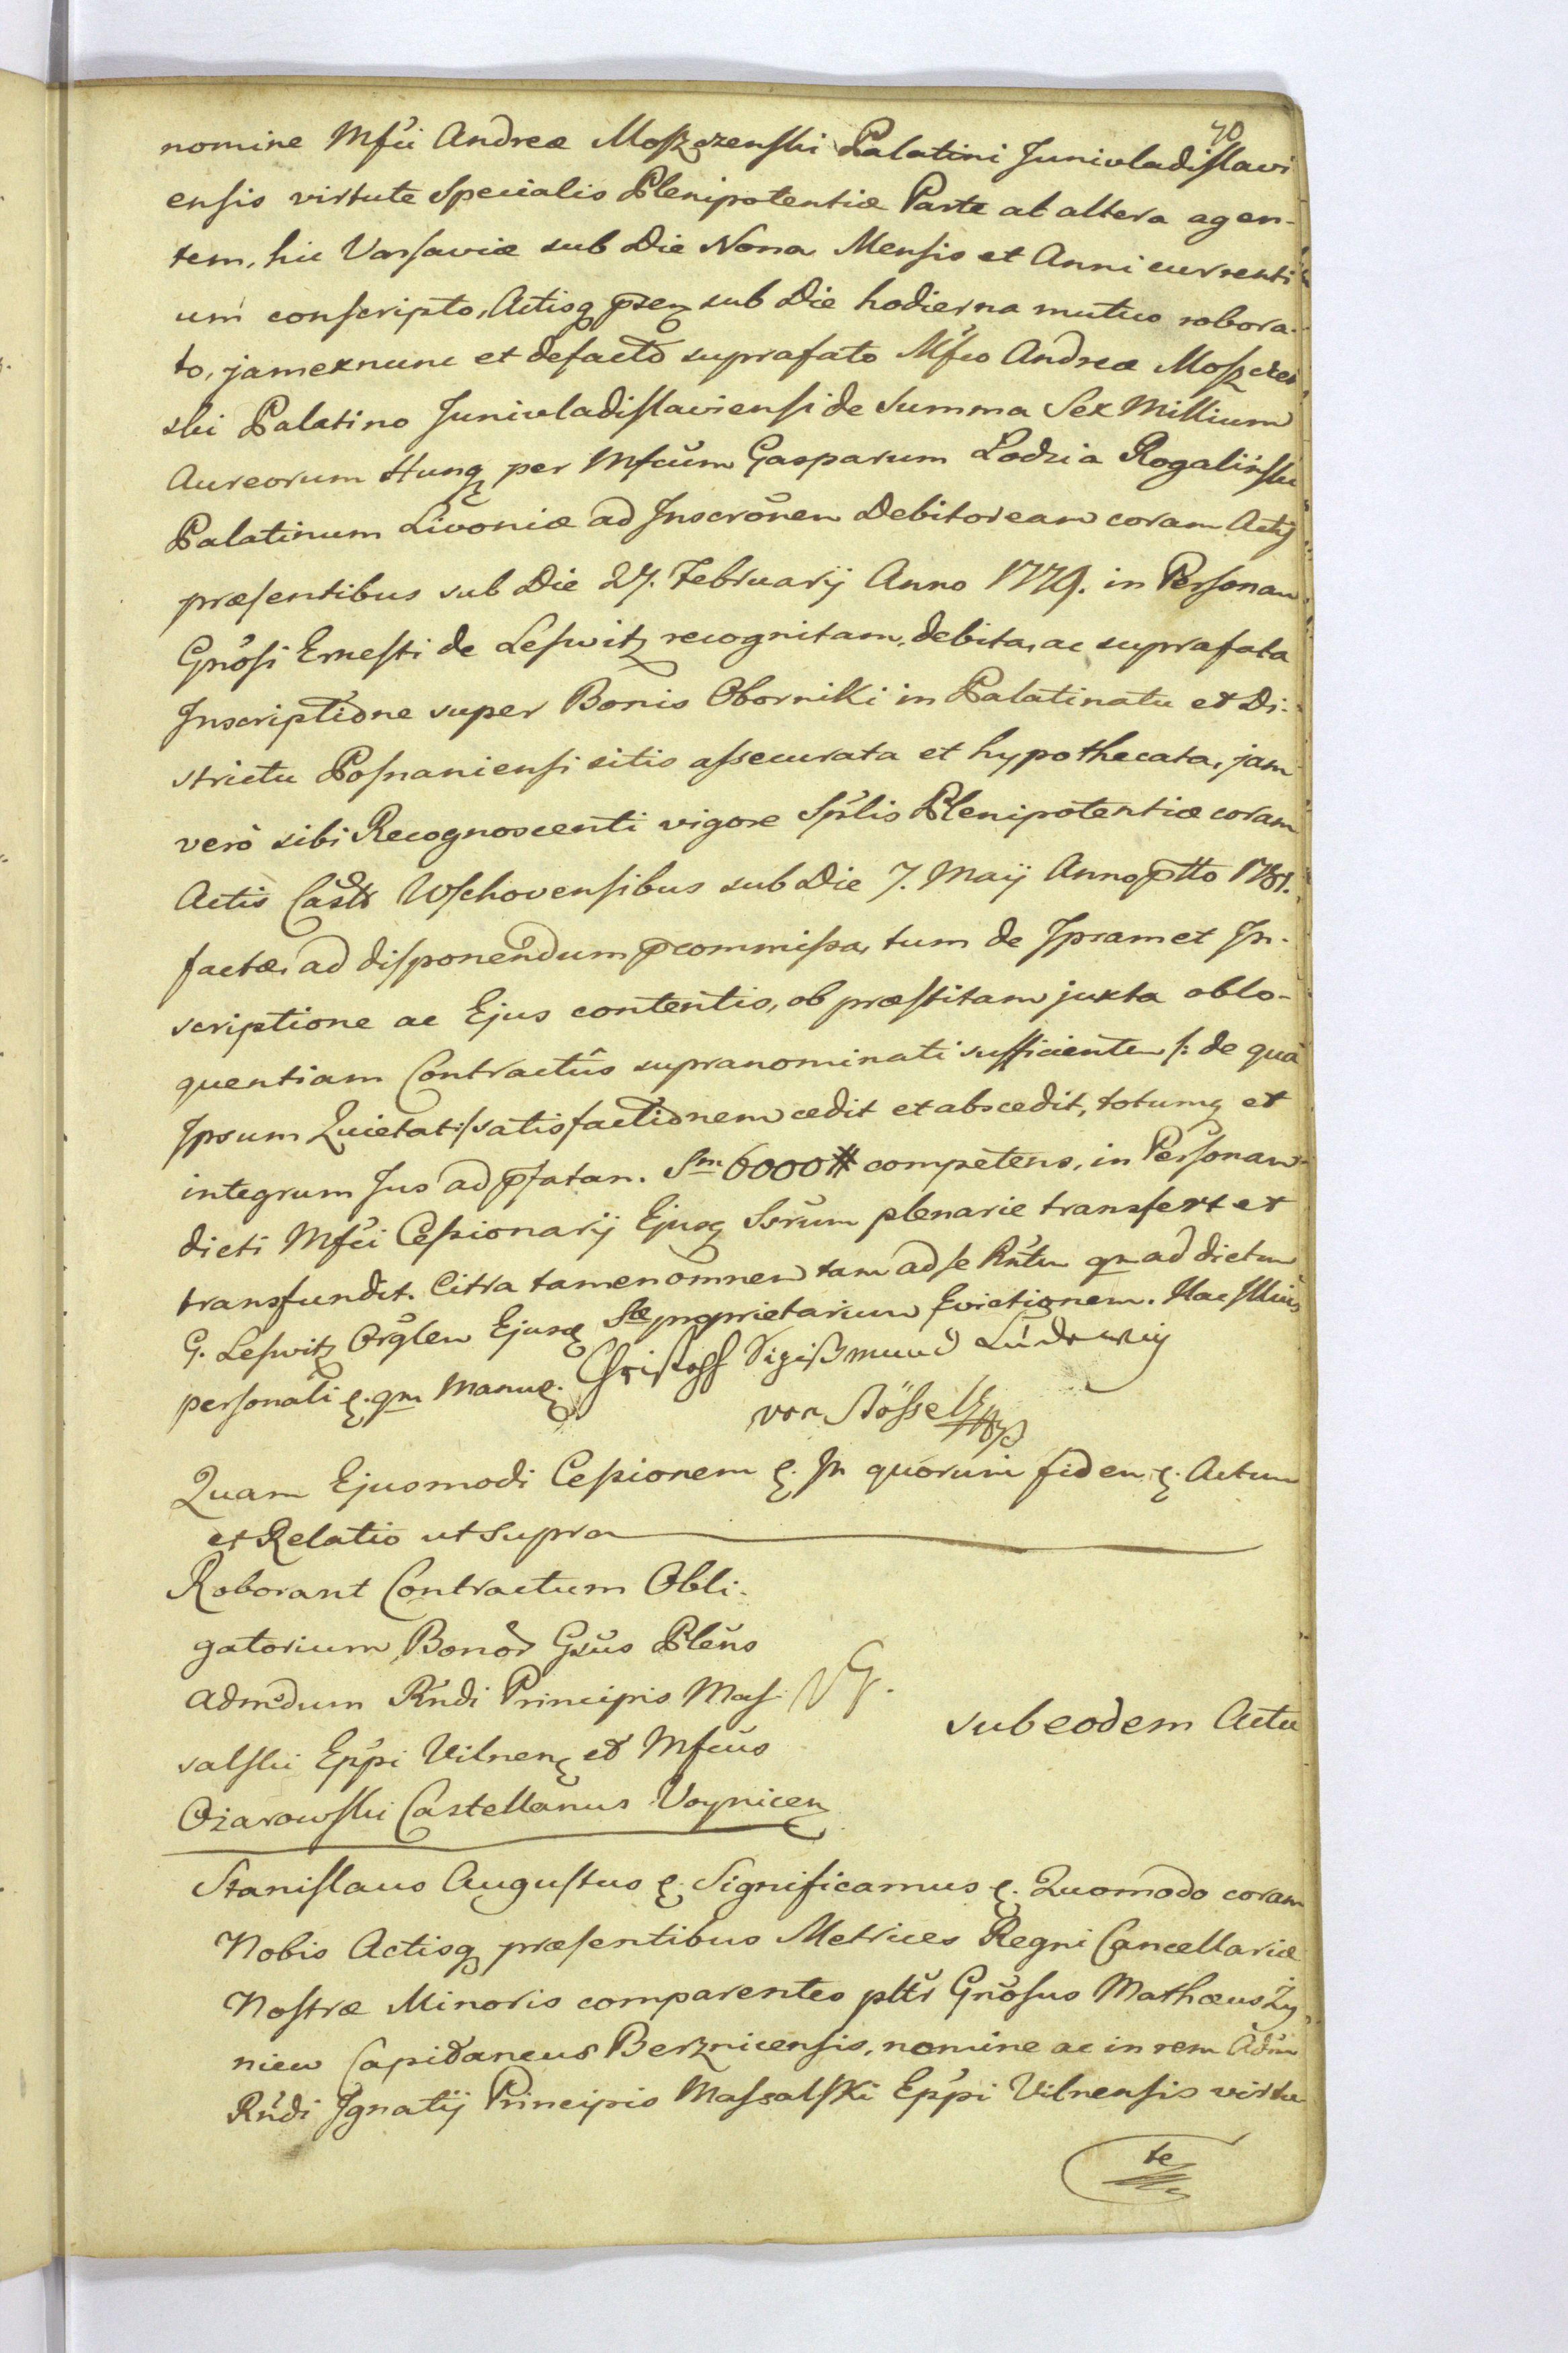 70
nomine Mfci Andreæ Moszczenski Palatini Junivladislavi
ensis virtute Specialis Plenipotentiæ Parte ab altera agen-
tem, hic Varsaviæ sub Die Nona Mensis et Anni currenti
um conscripto, Actisq. psen. sub Die hodierna mutuo robora-
to, jam ex nunc et defacto suprafato Mfco Andreæ Moszczen
ski Palatino Junivladislaviensi de Summa Sex Millium
Aureorum Hung. per Mfcum Gasparum Lodzia Rogalinski
Palatinum Livoniæ ad Inscrönem Debitoream coram Actis
præsentibus sub Die 27. Februarij Anno 1779. in Personam
Gnosi Ernesti de Leswitz recognitam, debita, ac suprafata
Inscriptione super Bonis Oborniki in Palatinatu et Di-
strictu Posnaniensi sitis assecurata et hypothecata, jam
verò sibi Recognoscenti vigore Splis Plenipotentiæ coram
Actis Castr Wschovensibus sub Die 7. Maij Anno ptto 1781.
factæ, ad disponendum pcommissa, tum de Ipsamet In-
scriptione ac Ejus contentis, ob præstitam juxta oblo-
quentiam Contractûs supranominati sufficientem /: de quâ
Ipsum Quietat :/ satisfactionem cedit et abscedit, totumq. et
integrum Jus ad pfatam Sm 6000 # competens, in Personam
dicti Mfci Cessionarij Ejusq. Ssrum plenarie transfert et
transfundit. Citra tamen omnem tam ad se Rntem qm ad dictum
G. Leswitz Orglem Ejusq. Sæ proprietarium Evictionem. Hac Illius
personali &. qm Manu &. Christoph Sigißmund Ludewig
von Stösselz
Quam Ejusmodi Cessionem &. In quorum fidem &. Actum
et Relatio ut supra
Roborant Contractum Obli-
gatorium Bonor Gsus Plens
Admodum Rndi Principis Mas-
salski Eppi Vilnen. et Mfcus
Ożarowski Castellanus Voynicen.
sub eodem Actu
Stanislaus Augustus &. Significamus &. Quomodo coram
Nobis Actisq. præsentibus Metrices Regni Cancellariæ
Nostræ Minoris comparentes pltr Gnosus Mathæus Ży
niew Capidaneus Berznicensis, nomine ac in rem Adm
Rndi Ignatij Principis Massalski Eppi Vilnensis virtu
te